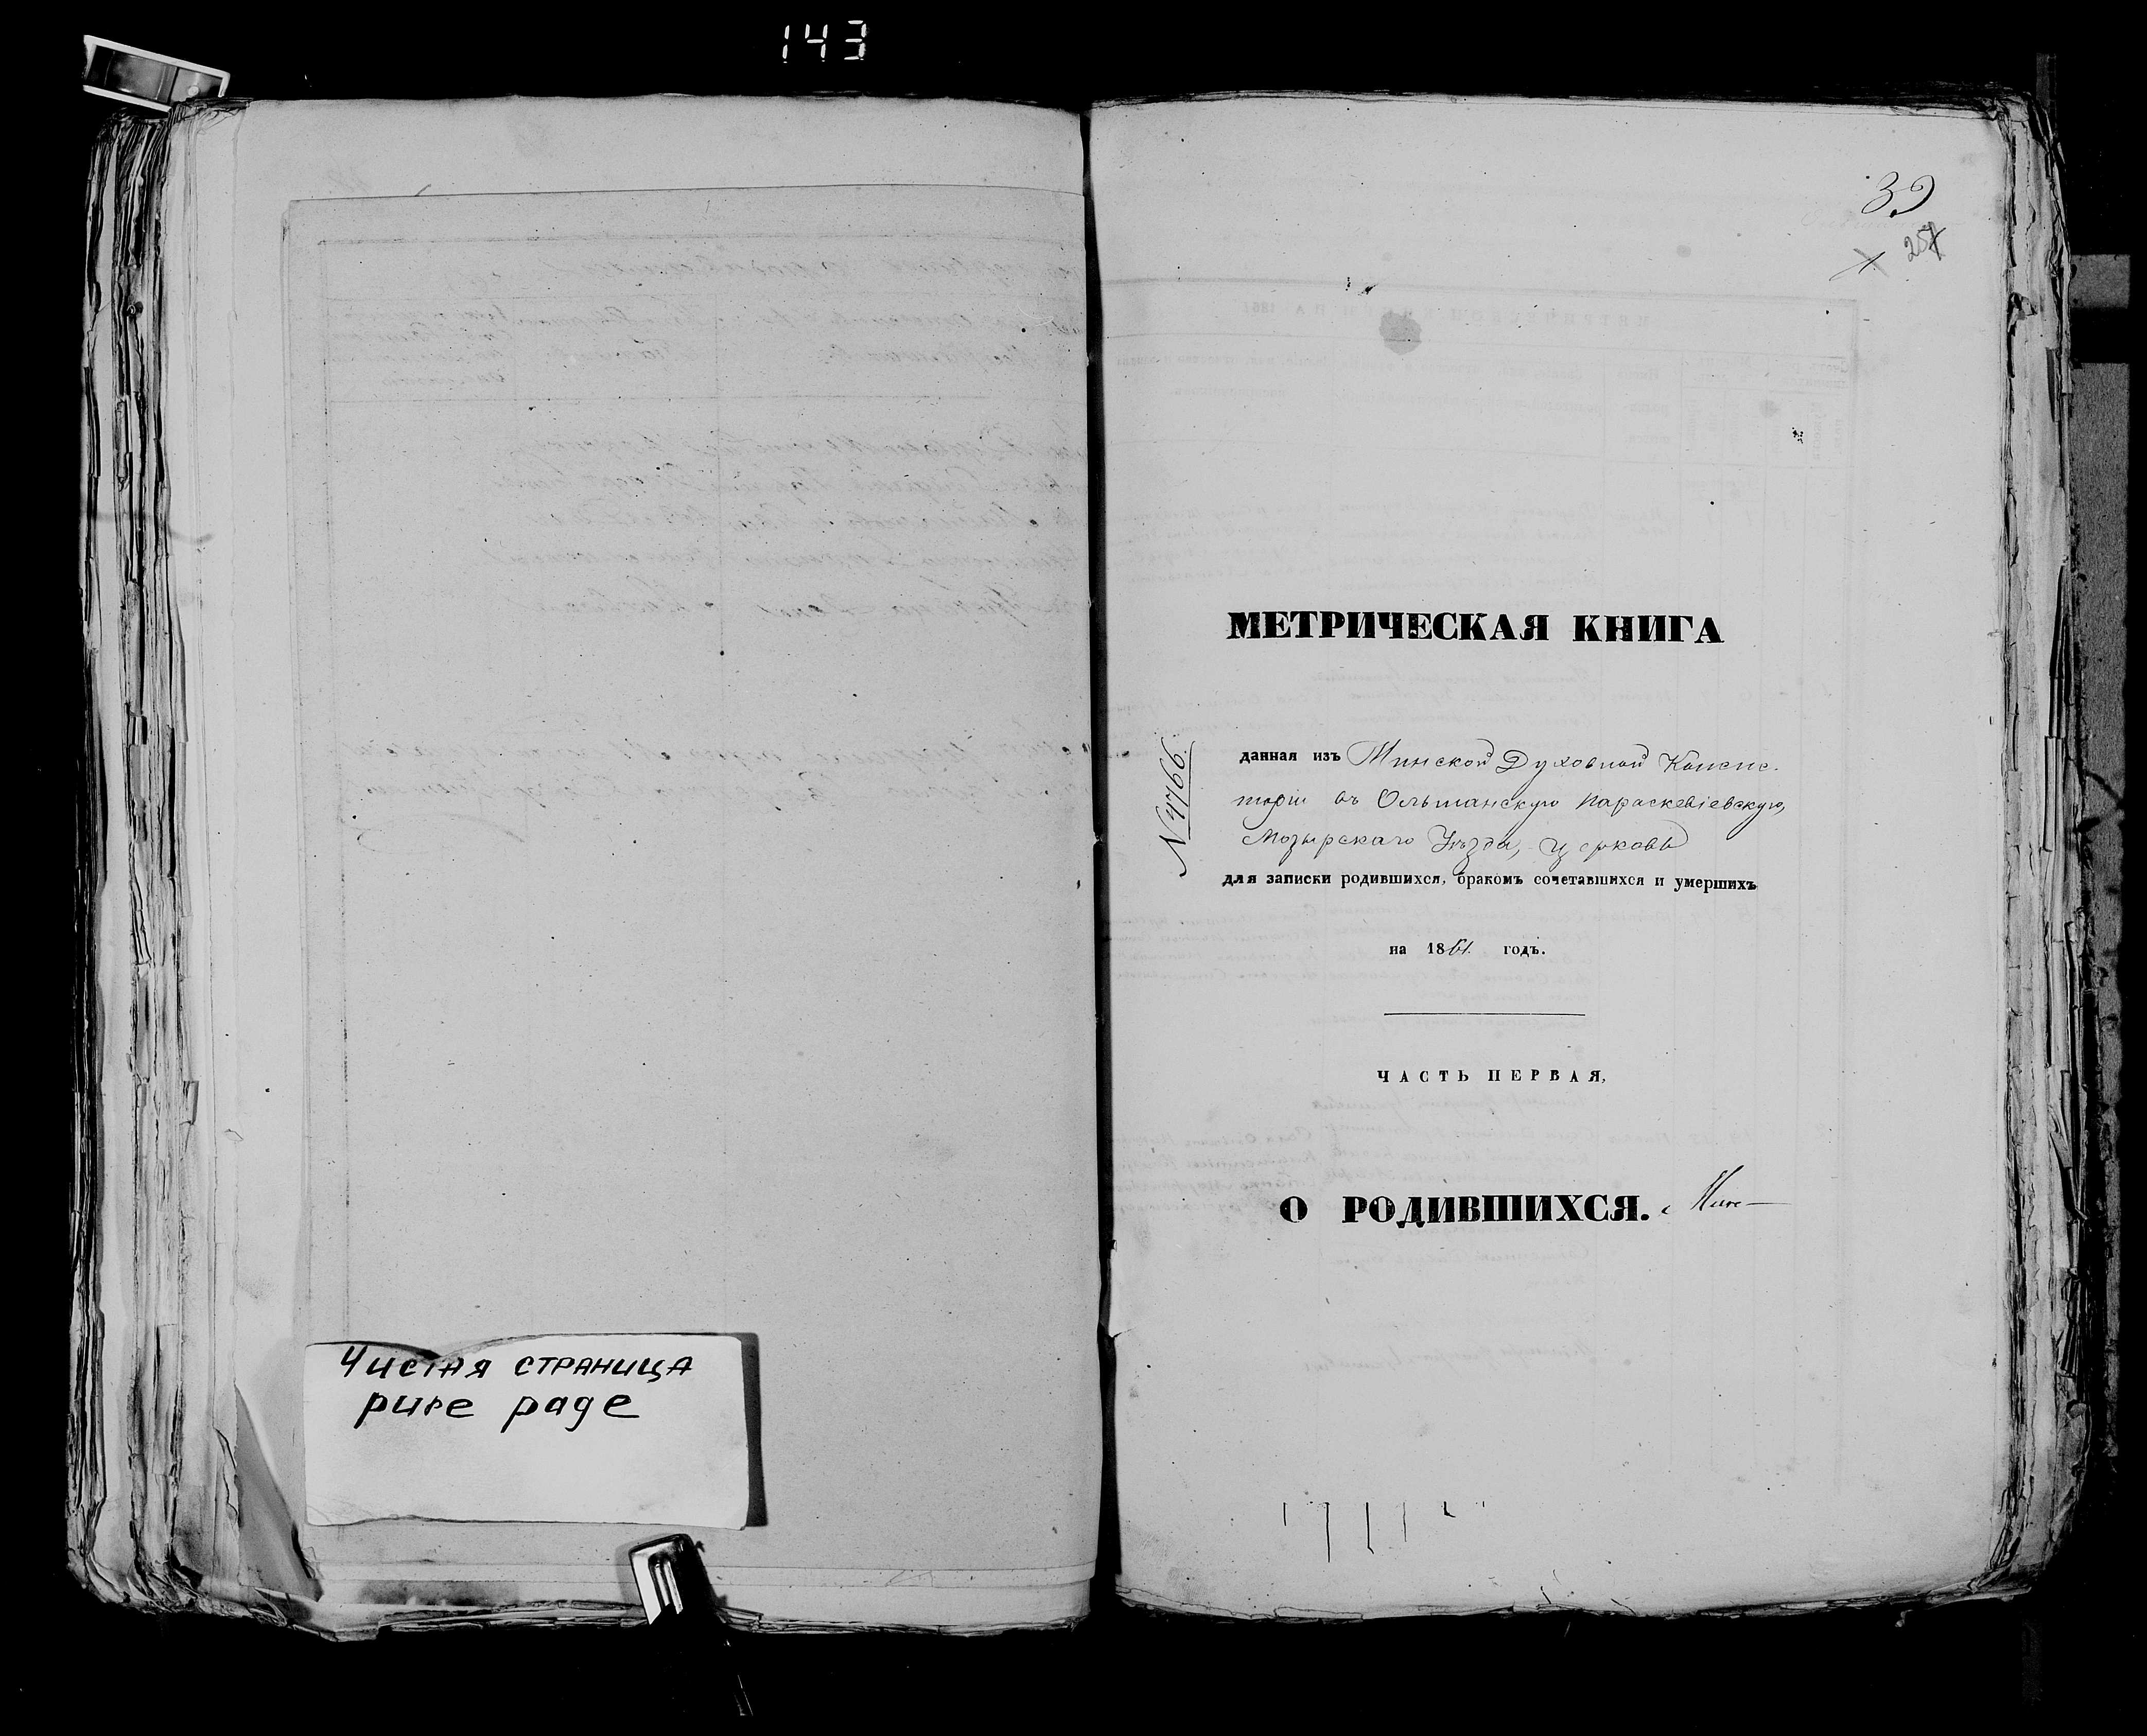 143
Чистая страница
pure page
39
257
МЕТРИЧЕСКАЯ КНИГА
N 4766.
данная изъ Минской Духовной Консис-
торіи въ Ольшанскую Параскевіевскую,
Мозырскаго Уѣзда, церковь
для записки родившихся, бракомъ сочетавшихся и умершихъ
на 1861 годъ.
ЧАСТЬ ПЕРВАЯ,
О РОДИВШИХСЯ.